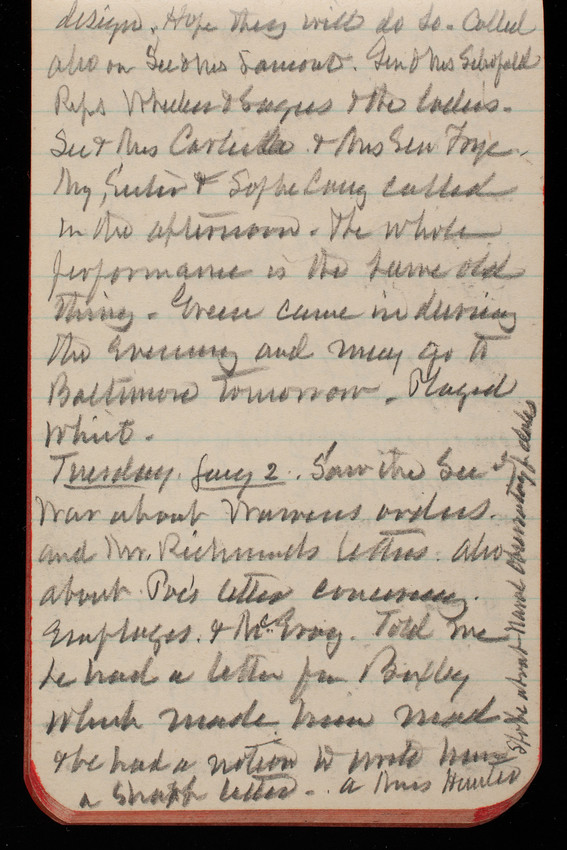 design. Hope they will do so. Called
also on Sec & Mrs Lamont. Gen & Mrs Schofield
Reps Wheeler & & the ladies.
Sec & Mrs Carlisle & Mrs Gen
My, & Sophe Casey called
in the afternoon. The whole
performance is the same old
thing. Green came in during
the Evening and may go to
Baltimore tomorrow. Played
Whist.
Tuesday. Jany 2. Saw the Secy
War about Warrens orders.
and Mr. Richmonds letters. also
about Poe's letter concerning
Employes. & Told me
he had a letter fm Bixby
which made him mad
& he had a notion to write him
a Snapp letter. a Mrs Hunter
Spoke about Naval Observatory